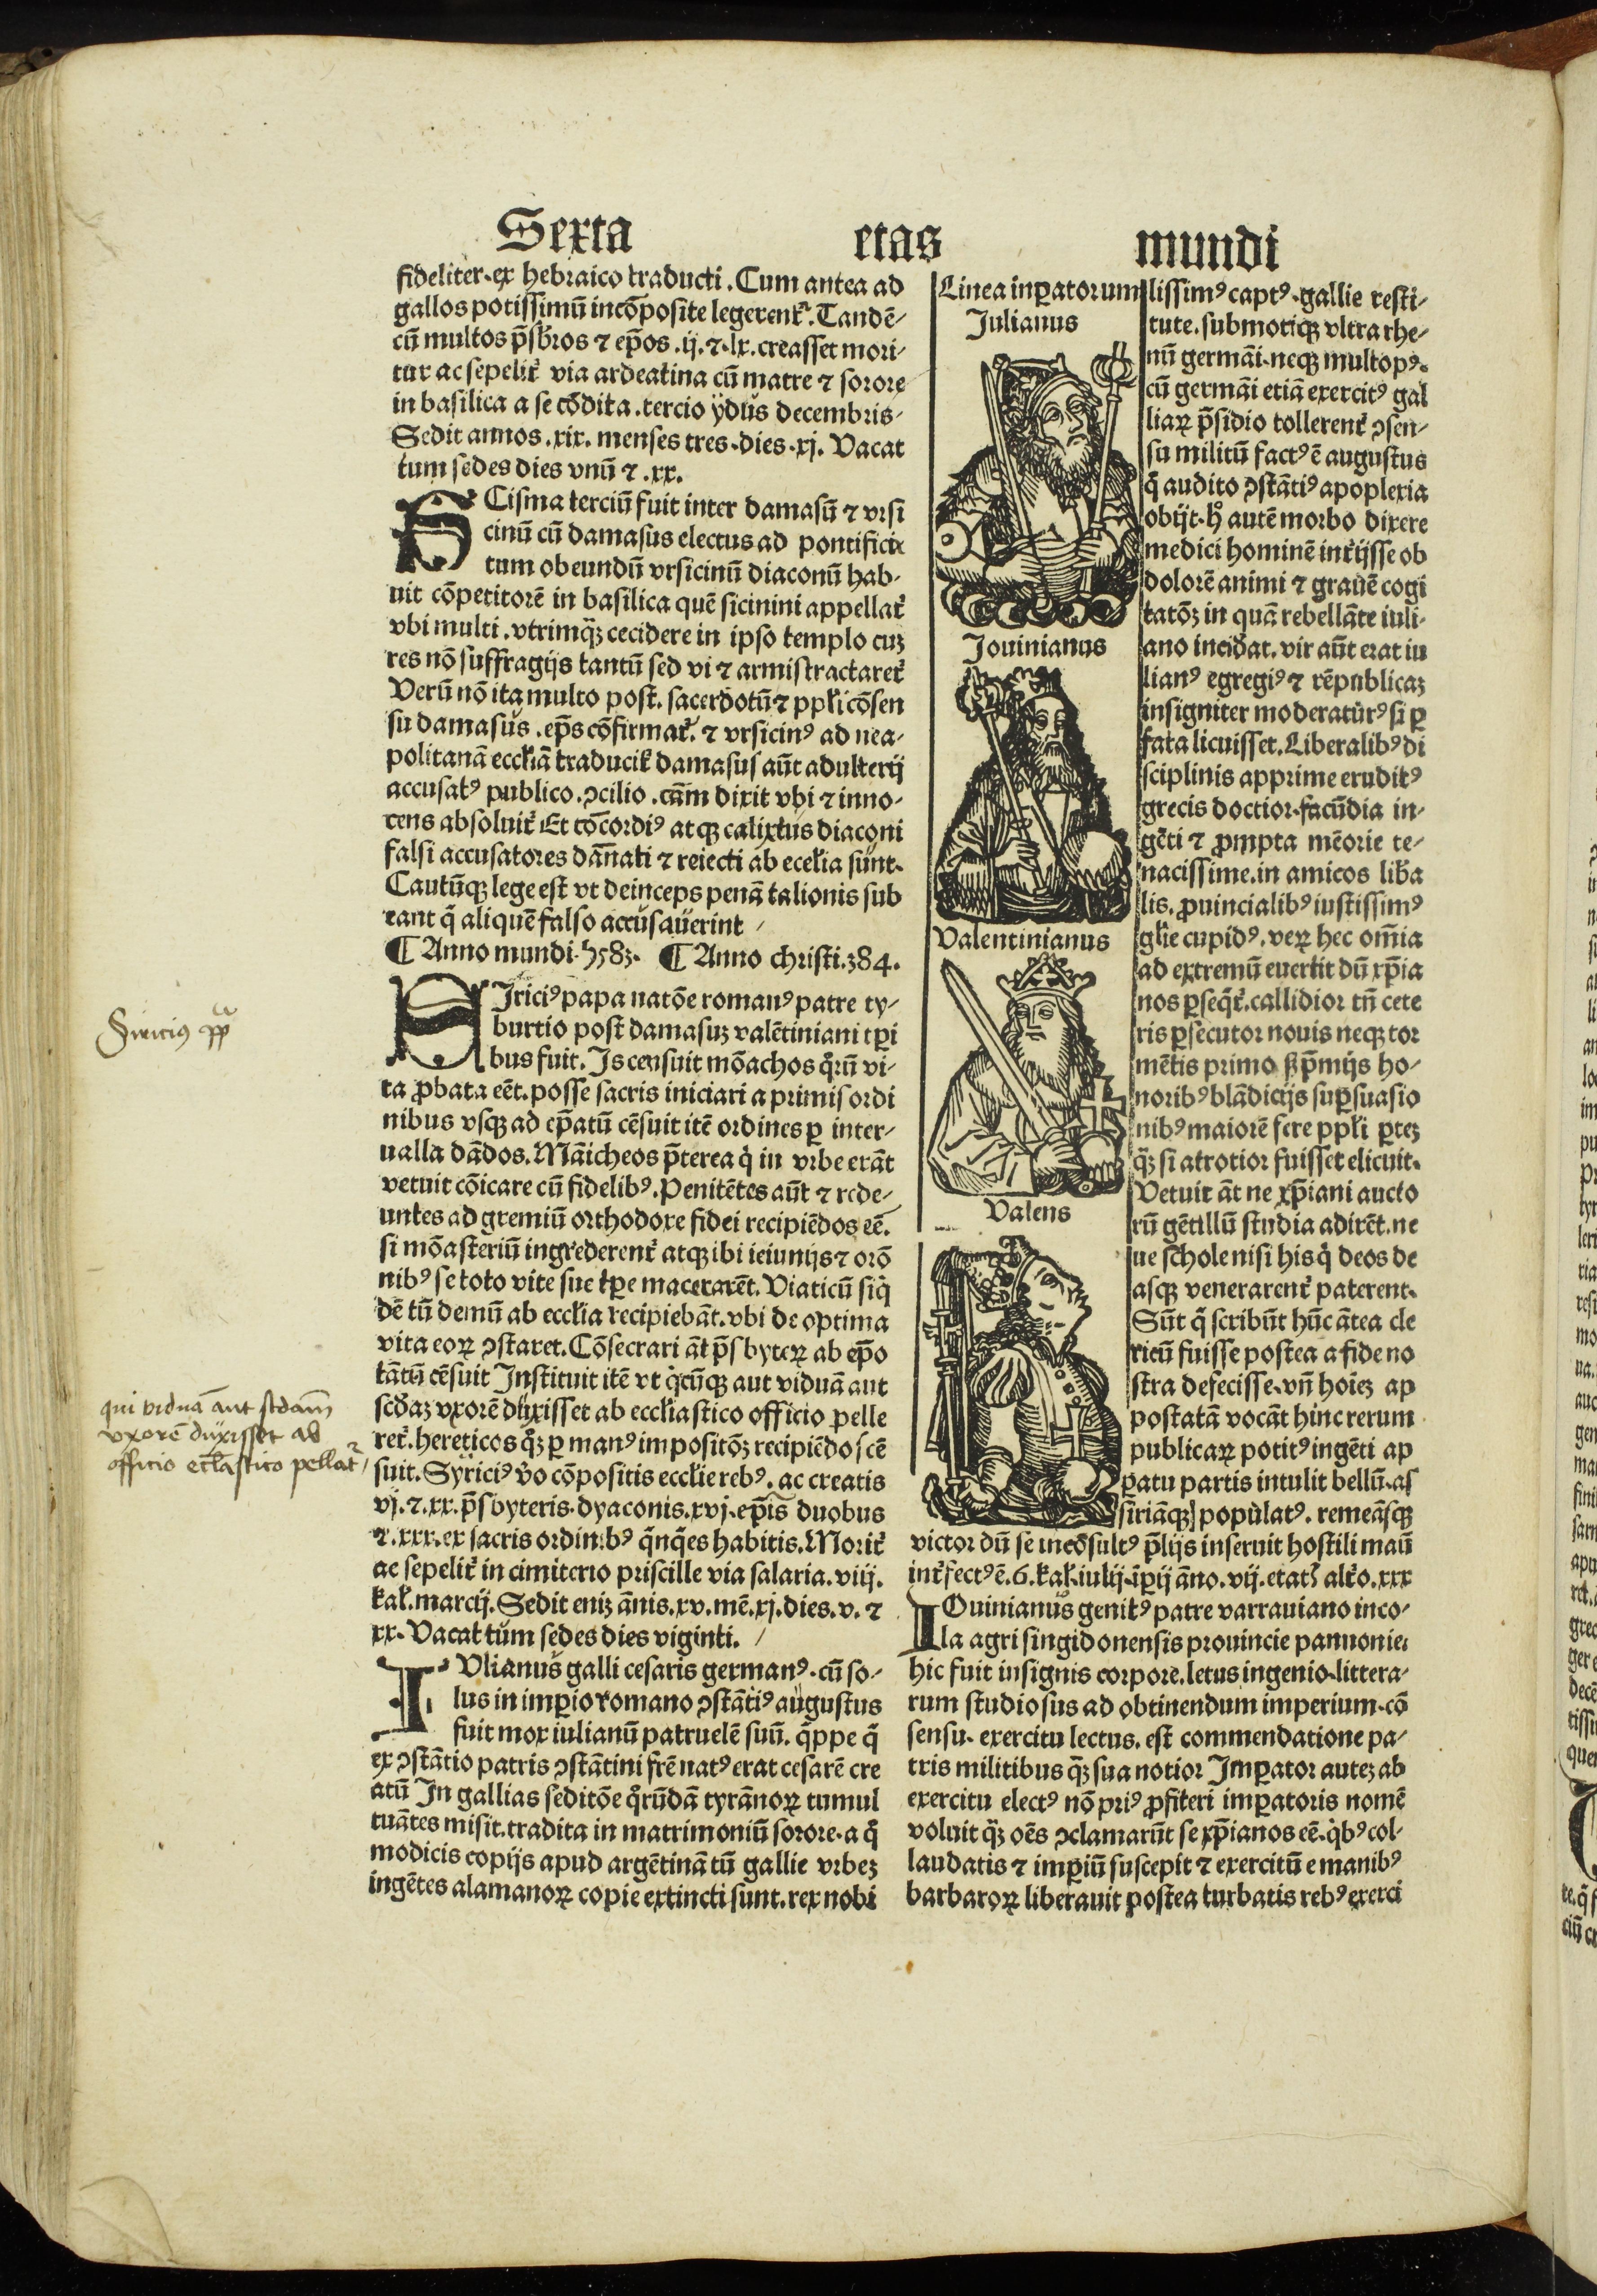 Sexta etas mundi
fideliter.ex hebraico traducti. Cum antea ad
gallos potissimū incōposite legerent᷑. Tandē-
cū multos p̄sbros ⁊ ep̄os .ij.⁊.lx. creasset mori-
tur ac sepelit᷑ via ardeatina cū matre ⁊ sorore
in basilica a se cōdita .tercio ydus decembris-
Sedit annos .xix. menses tres .dies .xj. Vacat
tum sedes dies vnū ⁊ .xx.
SCisma terciū fuit inter damasū ⁊ vrsi
cinū cū damasus electus ad pontifica
tum obeundū vrsicinū diaconū hab-
uit cōpetitorē in basilica quē sicinini appellat᷑
vbi multi .vtrimqꝫ cecidere in ipso templo cuꝫ
res nō suffragijs tantū sed vi ⁊ armis tractaret᷑
Verū nō ita multo post. sacerdotū ⁊ ppl̵i cōsen
su damasus .ep̄s cōfirmat᷑. ⁊ vrsicinꝰ ad nea-
politanā eccl̵iā traducit᷑ damasus aūt adulterij
accusatꝰ publico .ꝯcilio .cām dixit vbi ⁊ inno-
cens absoluit᷑ Et cōcordiꝰ atqꝫ calixtus diaconi
falsi accusatores dān̄ati ⁊ reiecti ab eccl̵ia sunt.
Cautūqꝫ lege est vt deinceps penā talionis sub
eant q̄ aliquē falso accusauerint
¶ Anno mundi .5583. ¶ Anno christi.384.
SIriciꝰ papa natōe romanꝰ patre ty-
burtio post damasuꝫ valētiniani tꝑi
bus fuit. Is censuit mōachos qͦrū vi-
ta ꝓbata eēt. posse sacris iniciari a primis ordi
nibus vsqꝫ ad ep̄atū cēsuit itē ordines ꝑ inter-
ualla dādos. Māicheos p̄terea qͥ in vrbe erāt
vetuit cōicare cū fidelibꝰ. Penitētes aūt ⁊ rede-
untes ad gremiū orthodoxe fidei recipiēdos eē.
si mōasteriū ingrederent᷑ atqꝫ ibi ieiunijs ⁊ orō
nibꝰ se toto vite sue tꝑe macerarēt. Viaticū siqͥ
dē tū demū ab eccl̵ia recipiebāt. vbi de optima
vita eoꝝ ꝯstaret. Cōsecrari āt p̄sbyteꝝ ab ep̄o
tātū cēsuit Instituit itē vt qͥcūqꝫ aut viduā aut
scd̵aꝫ vxorē duxisset ab eccl̵iastico officio pelle
ret᷑. hereticos qͦꝫ ꝑ manꝰ impositōꝫ recipiēdos cē
suit. Syriciꝰ v̊o cōpositis eccl̵ie rebꝰ. ac creatis
vj.⁊.xx. p̄sbyteris. dyaconis.xvj. ep̄is duobus
⁊.xxx.ex sacris ordinibꝰ q̄nq̄es habitis. Morit᷑
ac sepelit᷑ in cimiterio priscille via salaria. viij.
kal̵. marcij. Sedit eniꝫ ānis .xv. mē. xj. dies. v. ⁊
xx. Vacat tum sedes dies viginti.
IVlianus galli cesaris germanꝰ .cū so-
lus in imꝑio romano ꝯstātiꝰ augustus
fuit mox iulianū patruelē suū. q̄ppe q̄
ex ꝯstātio patris ꝯstātini frē natꝰ erat cesarē cre
atū In gallias seditōe qͦrūdā tyrānoꝝ tumul
tuātes misit. tradita in matrimoniū sorore. a q̄
modicis copijs apud argētinā tū gallie vrbeꝫ
ingētes alamanoꝝ copie extincti sunt. rex nobi
Linea inꝑatorum
Julianus
Jouinianus
Valentinianus
Valens
lissimꝰ captꝰ. gallie resti-
tute. submotiqꝫ vltra rhe-
nū germāi. neqꝫ multo pꝰ.
cū germāi etiā exercitꝰ gal
liaꝝ p̄sidio tollerent᷑ ꝯsen-
su militū factꝰ ē augustus
q̄ audito ꝯstātiꝰ apoplexia
obijt. hͦ autē morbo dixere
medici hominē int᷑ijsse ob
dolorē animi ⁊ grauē cogi
tatōꝫ in quā rebellāte iuli-
ano incidat. vir aūt erat iu
lianꝰ egregiꝰ ⁊ rēpublicaꝫ
insigniter moderaturꝰ si ꝑ
fata licuisset. Liberalibꝰ di
sciplinis apprime eruditꝰ
grecis doctior. facūdia in-
gēti ⁊ ꝓmpta mēorie te-
nacissime. in amicos lib̵a
lis. ꝓuincialibꝰ iustissimꝰ
gl̵ie cupidꝰ. veꝝ hec om̄ia
ad extremū euertit dū xp̄ia
nos ꝑseq̄t᷑. callidior tn̄ cete
ris ꝑsecutor nouis neqꝫ tor
mētis primo sꝫ p̄mijs ho-
noribꝰ blādicijs suꝑsuasio
nibꝰ maiorē fere ppl̵i ꝑteꝫ
qͣꝫ si atrotior fuisset elicuit.
Vetuit āt ne xp̄iani aucto
rū gētiliū studia adirēt. ne
ue schole nisi his q̄ deos de
asqꝫ venerarent᷑ paterent.
Sūt q̄ scribūt hūc ātea cle
ricū fuisse postea a fide no
stra defecisse. vn̄ hoīeꝫ ap
postatā vocāt hinc rerum
publicaꝝ potitꝰ ingēti ap
ꝑatu partis intulit bellū. as
siriāqꝫ populatꝰ. remeāsqꝫ
victor dū se incōsultꝰ p̄lijs inseruit hostili maū
int᷑fectꝰ ē. 6. kal̵. iulij. iꝑij āno. vij. etatꝭ alt᷑o. xxx
IOuinianus genitꝰ patre varrauiano inco-
la agri singidonensis prouincie pannonie.
hic fuit insignis corpore. letus ingenio. littera-
rum studiosus ad obtinendum imperium. cō
sensu. exercitu lectus. est commendatione pa-
tris militibus qͣꝫ sua notior Imꝑator auteꝫ ab
exercitu electꝰ nō priꝰ ꝓfiteri imꝑatoris nomē
voluit qͣꝫ oēs ꝯclamarūt se xp̄ianos eē. qͥbꝰ col-
laudatis ⁊ imꝑiū suscepit ⁊ exercitū e manibꝰ
barbaroꝝ liberauit postea turbatis rebꝰ exerci
Siricius pp̄
qui viduā aut scdam̄
vxorē duxisset ab
officio eccl̵astico pellat᷑